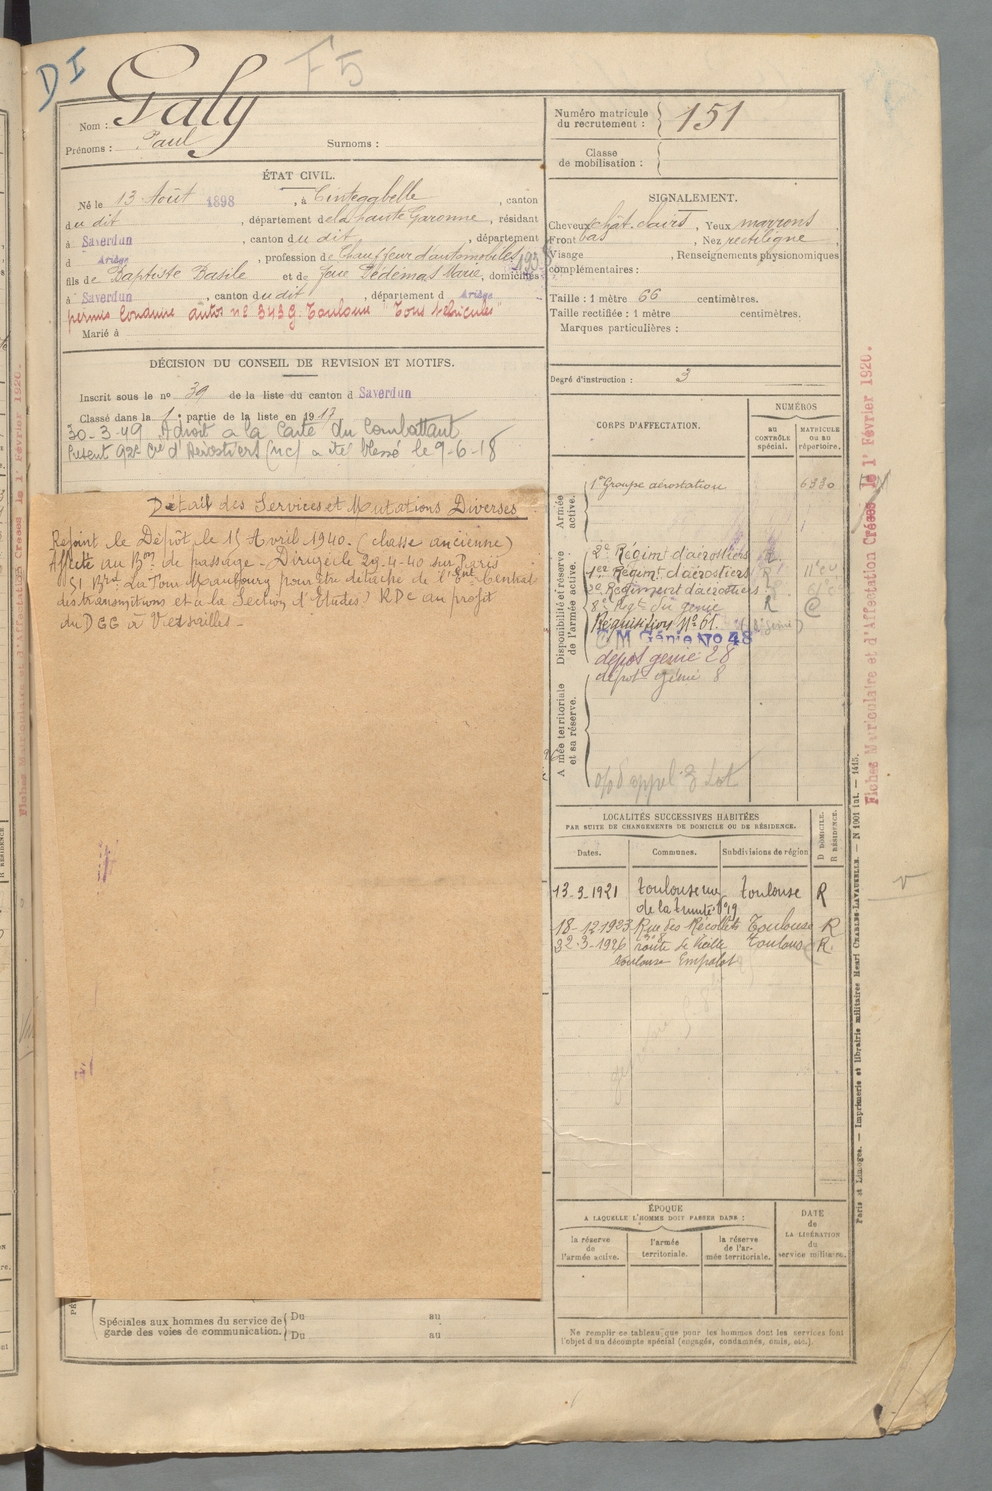 DI
F5
Nom : Galy
Prénoms : Paul Surnoms :
Numéro matricule du recrutement : 151
Classe de mobilisation :
ÉTAT CIVIL.
Né le 13 Août 1898, à Cintegabelle, canton
du dit, département de la haute Garonne, résidant
à Saverdun, canton du dit, département
d Ariège, profession de Chauffeur d'automobiles
fils de Baptiste Basile et de Marie, domiciliés
à Saverdun, canton du dit, département d Ariège
permis Conduire autos n° 3439 Toulouse "Tous véhicules"
Marié à
SIGNALEMENT.
Cheveux chât. clairs, Yeux marrons
Front bas, Nez rectiligne
Visage , Renseignements physionomiques
complémentaires :
Taille : 1 mètre 66 centimètres.
Taille rectifiée : 1 mètre centimètres.
Marques particulières :
Degré d'instruction : 3
DÉCISION DU CONSEIL DE REVISION ET MOTIFS.
Inscrit sous le no 39 de la liste du canton d Saverdun
Classé dans la 1e partie de la liste en 1917
30-3-49 A droit a la Carte du Combattant
Présent 92e Cie d'Aérostiers (nc) a été blessé le 9-6-18
Détail des Services et Mutations Diverses
Rejoint le Dépôt le 1er Avril 1940. (classe ancienne)
Affecté au Bon de passage - Dirigé le 29-4-40 sur Paris
51 Brd La Tour Maubourg pour être détaché de l'Ent Central
des transmitions et a la Section d'Etudes) RDC au profit
du DGG à Versailles -
CORPS D'AFFECTATION.
NUMÉROS
au contrôle spécial.
matricule ou au répertoire.
Armée active.
1er Groupe aérostation 6330
Disponibilité et réserve de l'armée active.
2e Régim t d'aérostiers R
1er Régim t d'aérostiers
2e Régiment d'aérostiers
8e Rgt du génie R
Réquisition N° 61.
C M Génie No 48
dépôt génie 28
dépôt génie 8
Armée territoriale et sa réserve.
o/o d'appel 3 Lot
LOCALITÉS SUCCESSIVES HABITÉES
PAR SUITE DE CHANGEMENTS DE DOMICILE OU DE RÉSIDENCE.
Dates. Communes. Subdivisions de région D DOMICILE. R RÉSIDENCE.
13-3-1921 Toulouse rue de la trinité n°19 Toulouse R
18-12-1923 Rue des Récollets Toulouse R
22-3-1926 route de Vieille Toulouse Empalot Toulouse R
ÉPOQUE
A LAQUELLE L'HOMME DOIT PASSER DANS :
la réserve de l'armée active.
l'armée territoriale.
la réserve de l'armée territoriale.
DATE de LA LIBÉRATION du service militaire.
Spéciales aux hommes du service de garde des voies de communication.
Du au
Du au
Ne remplir ce tableau que pour les hommes dont les services font
l'objet d'un décompte spécial (engagés, condamnés, omis, etc.).
Fiches Matriculaire et d'Affectation Créées le 1er Février 1920.
Paris et Limoges. — Imprimerie et librairie militaires Henri CHARLES-LAVAUZELLE. — N 1901 int. — 1415.